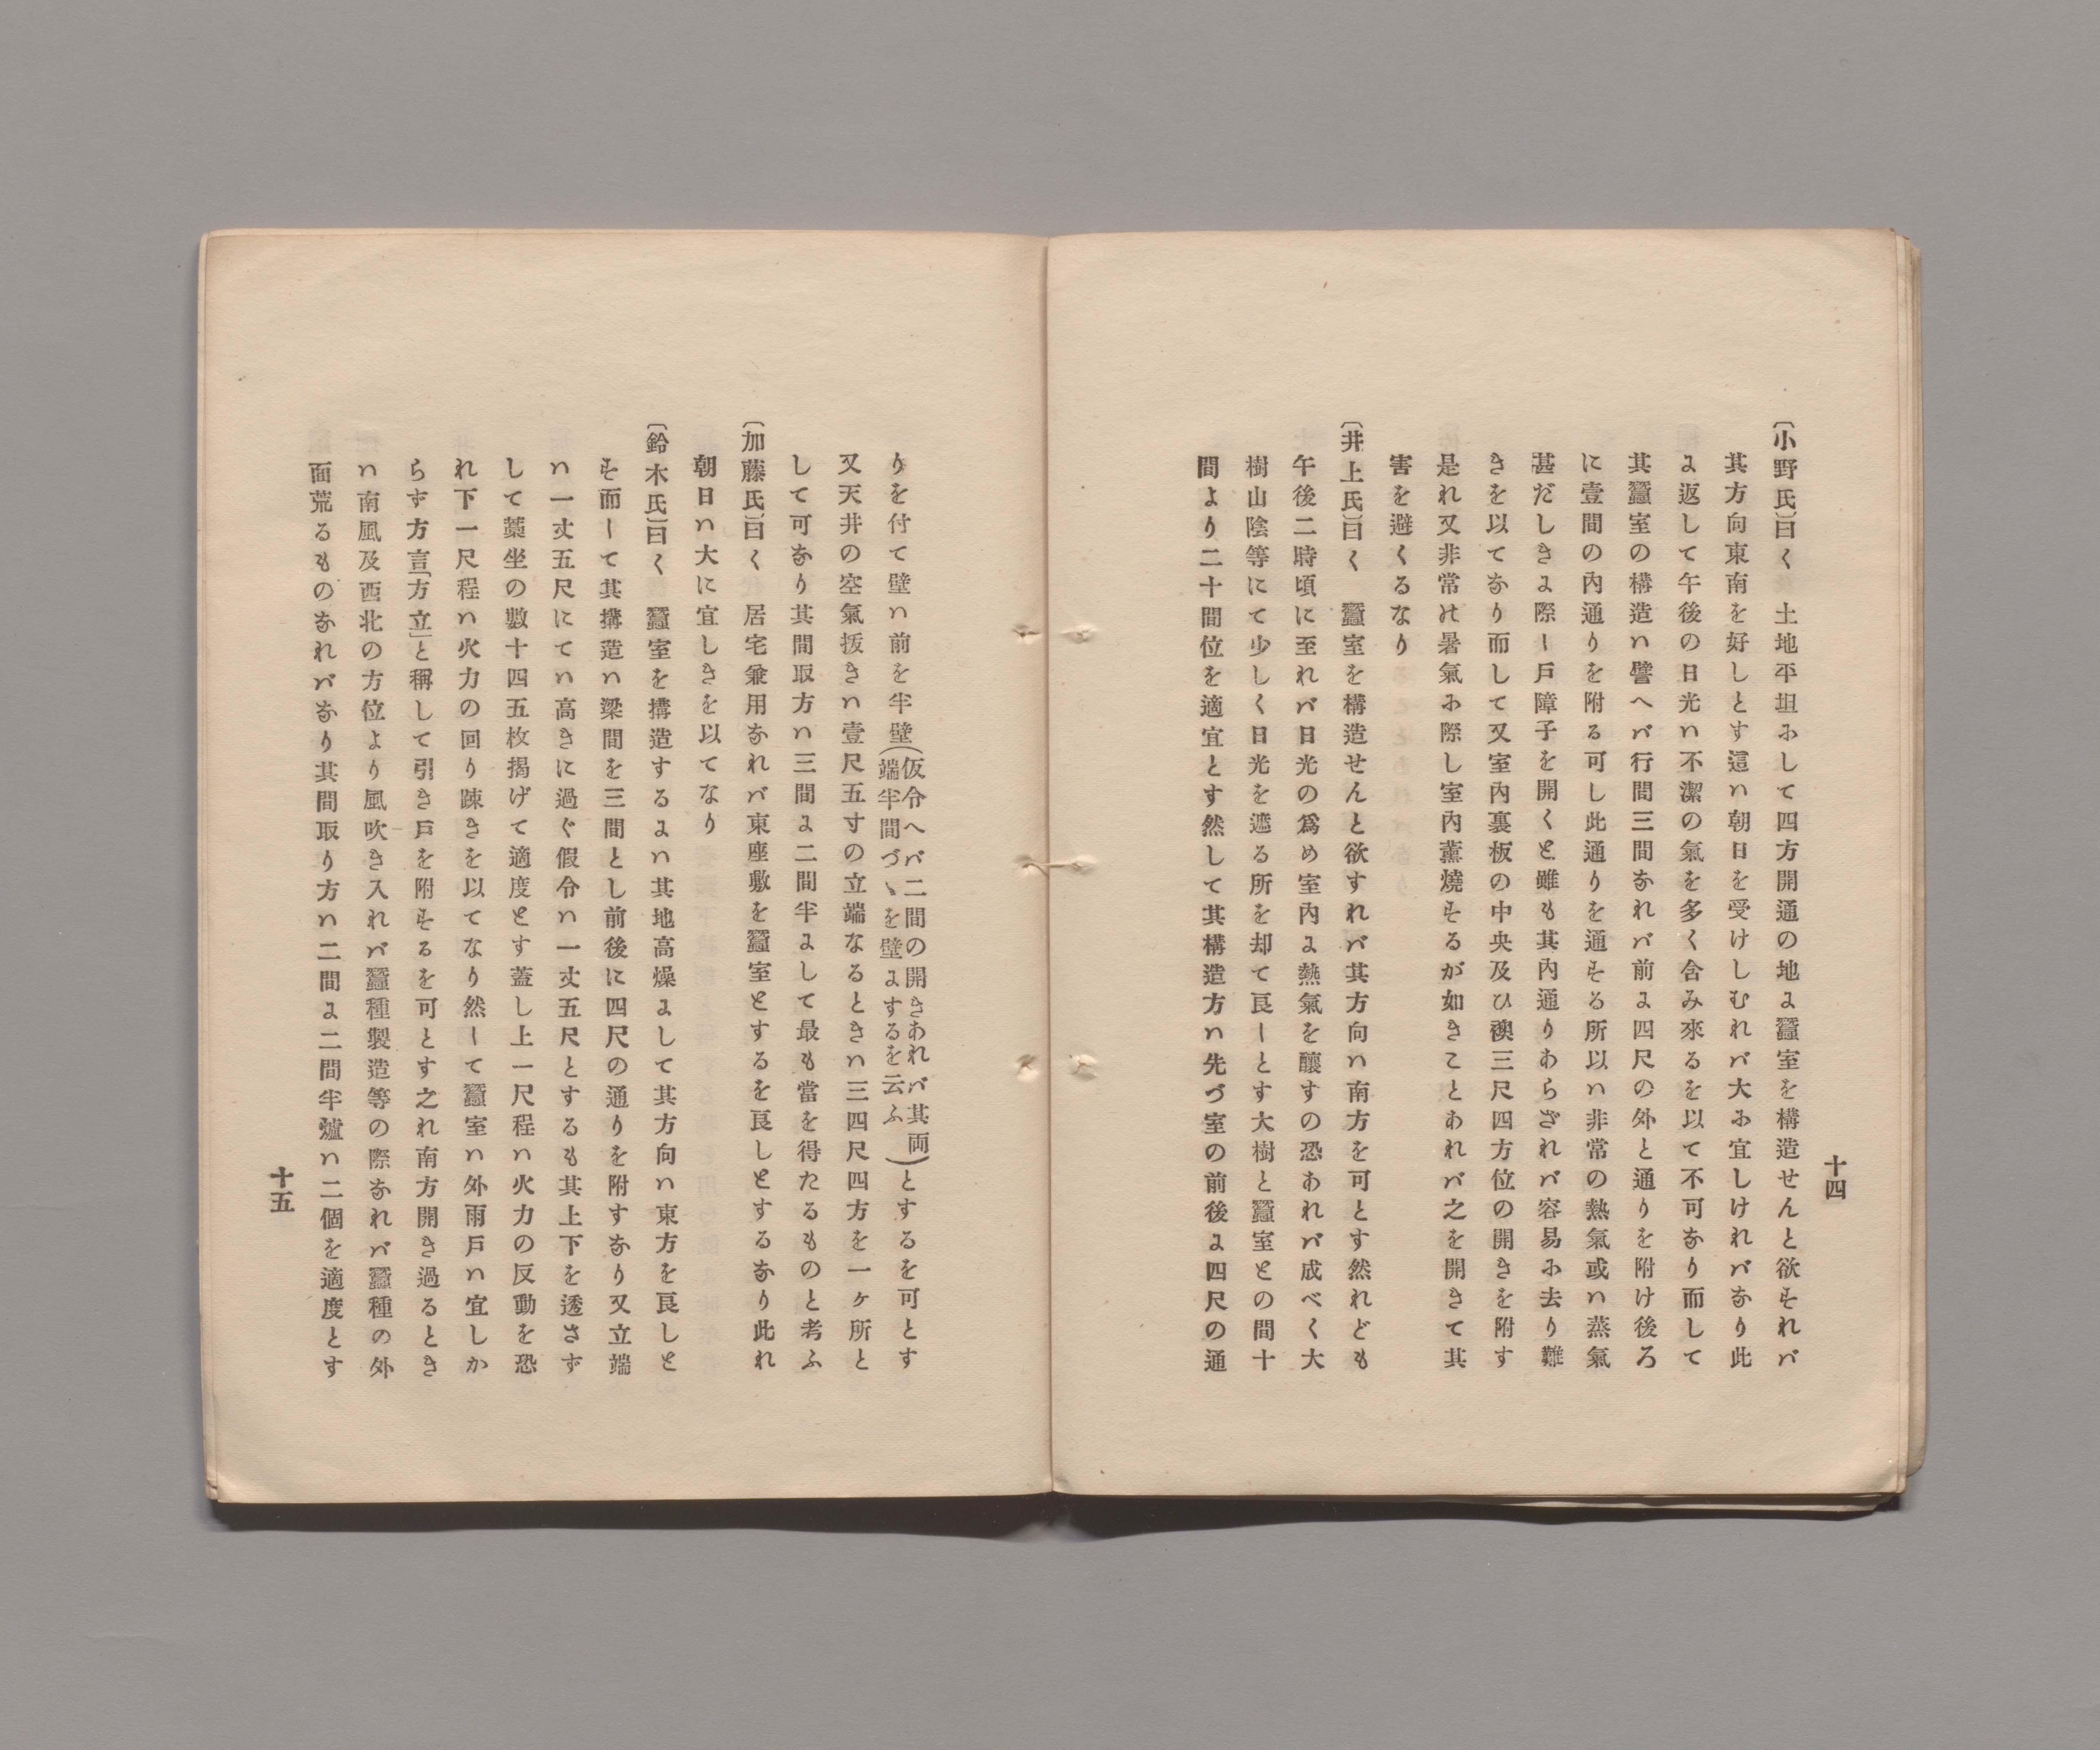 十四
〔小野氏〕曰く　土地平坦ふして四方開通の地ょ蠶室を構造せんと欲をれバ
其方向東南を好しとす這ハ朝日を受けしむれバ大ふ宜しけれバなり此
ょ返して午後の日光ハ不潔の氣を多く含み來るを以て不可なり而して
其蠶室の構造ハ譬へバ行間三間なれバ前ょ四尺の外と通りを附け後ろ
に壹間の內通りを附る可し此通りを通をる所以ハ非常の熱氣或ハ蒸氣
甚だしきょ際し戶障子を開くと雖も其內通りあらざれバ容易ふ去り難
きを以てなり而して又室內裏板の中央及ひ襖三尺四方位の開きを附す
是れ又非常の暑氣ふ際し室內薰燒をるが如きことあれバ之を開きて其
害を避くるなり
〔井上氏〕曰く　蠶室を構造せんと欲すれバ其方向ハ南方を可とす然れども
午後二時頃に至れバ日光の爲め室內ょ熱氣を釀すの恐あれバ成べく大
樹山陰等にて少しく日光を遮る所を却て良しとす大樹と蠶室との間十
間より二十間位を適宜とす然して其構造方ハ先づ室の前後ょ四尺の通
りを付て壁ハ前を半壁(仮令へバ二間の開きあれバ其両端半間づゝを壁ょするを云ふ)とするを可とす
又天井の空氣拔きハ壹尺五寸の立端なるときハ三四尺四方を一ヶ所と
して可なり其間取方ハ三間ょ二間半ょして最も當を得たるものと考ふ
〔加藤氏〕曰く　居宅兼用なれバ東座敷を蠶室とするを良しとするなり此れ
朝日ハ大に宜しきを以てなり
〔鈴木氏〕曰く　蠶室を搆造するょハ其地高燥ょして其方向ハ東方を良しと
を而して其搆造ハ梁間を三間とし前後に四尺の通りを附すなり又立端
ハ一丈五尺にてハ高きに過ぐ假令ハ一丈五尺とするも其上下を透さず
して藁坐の數十四五枚揭げて適度とす蓋し上一尺程ハ火力の反動を恐
れ下一尺程ハ火力の回り踈きを以てなり然して蠶室ハ外雨戶ハ宜しか
らず方言「方立」と稱して引き戶を附をるを可とす之れ南方開き過るとき
ハ南風及西北の方位より風吹き入れバ蠶種製造等の際なれバ蠶種の外
面荒るものなれバなり其間取り方ハ二間ょ二間半爐ハ二個を適度とす
十五